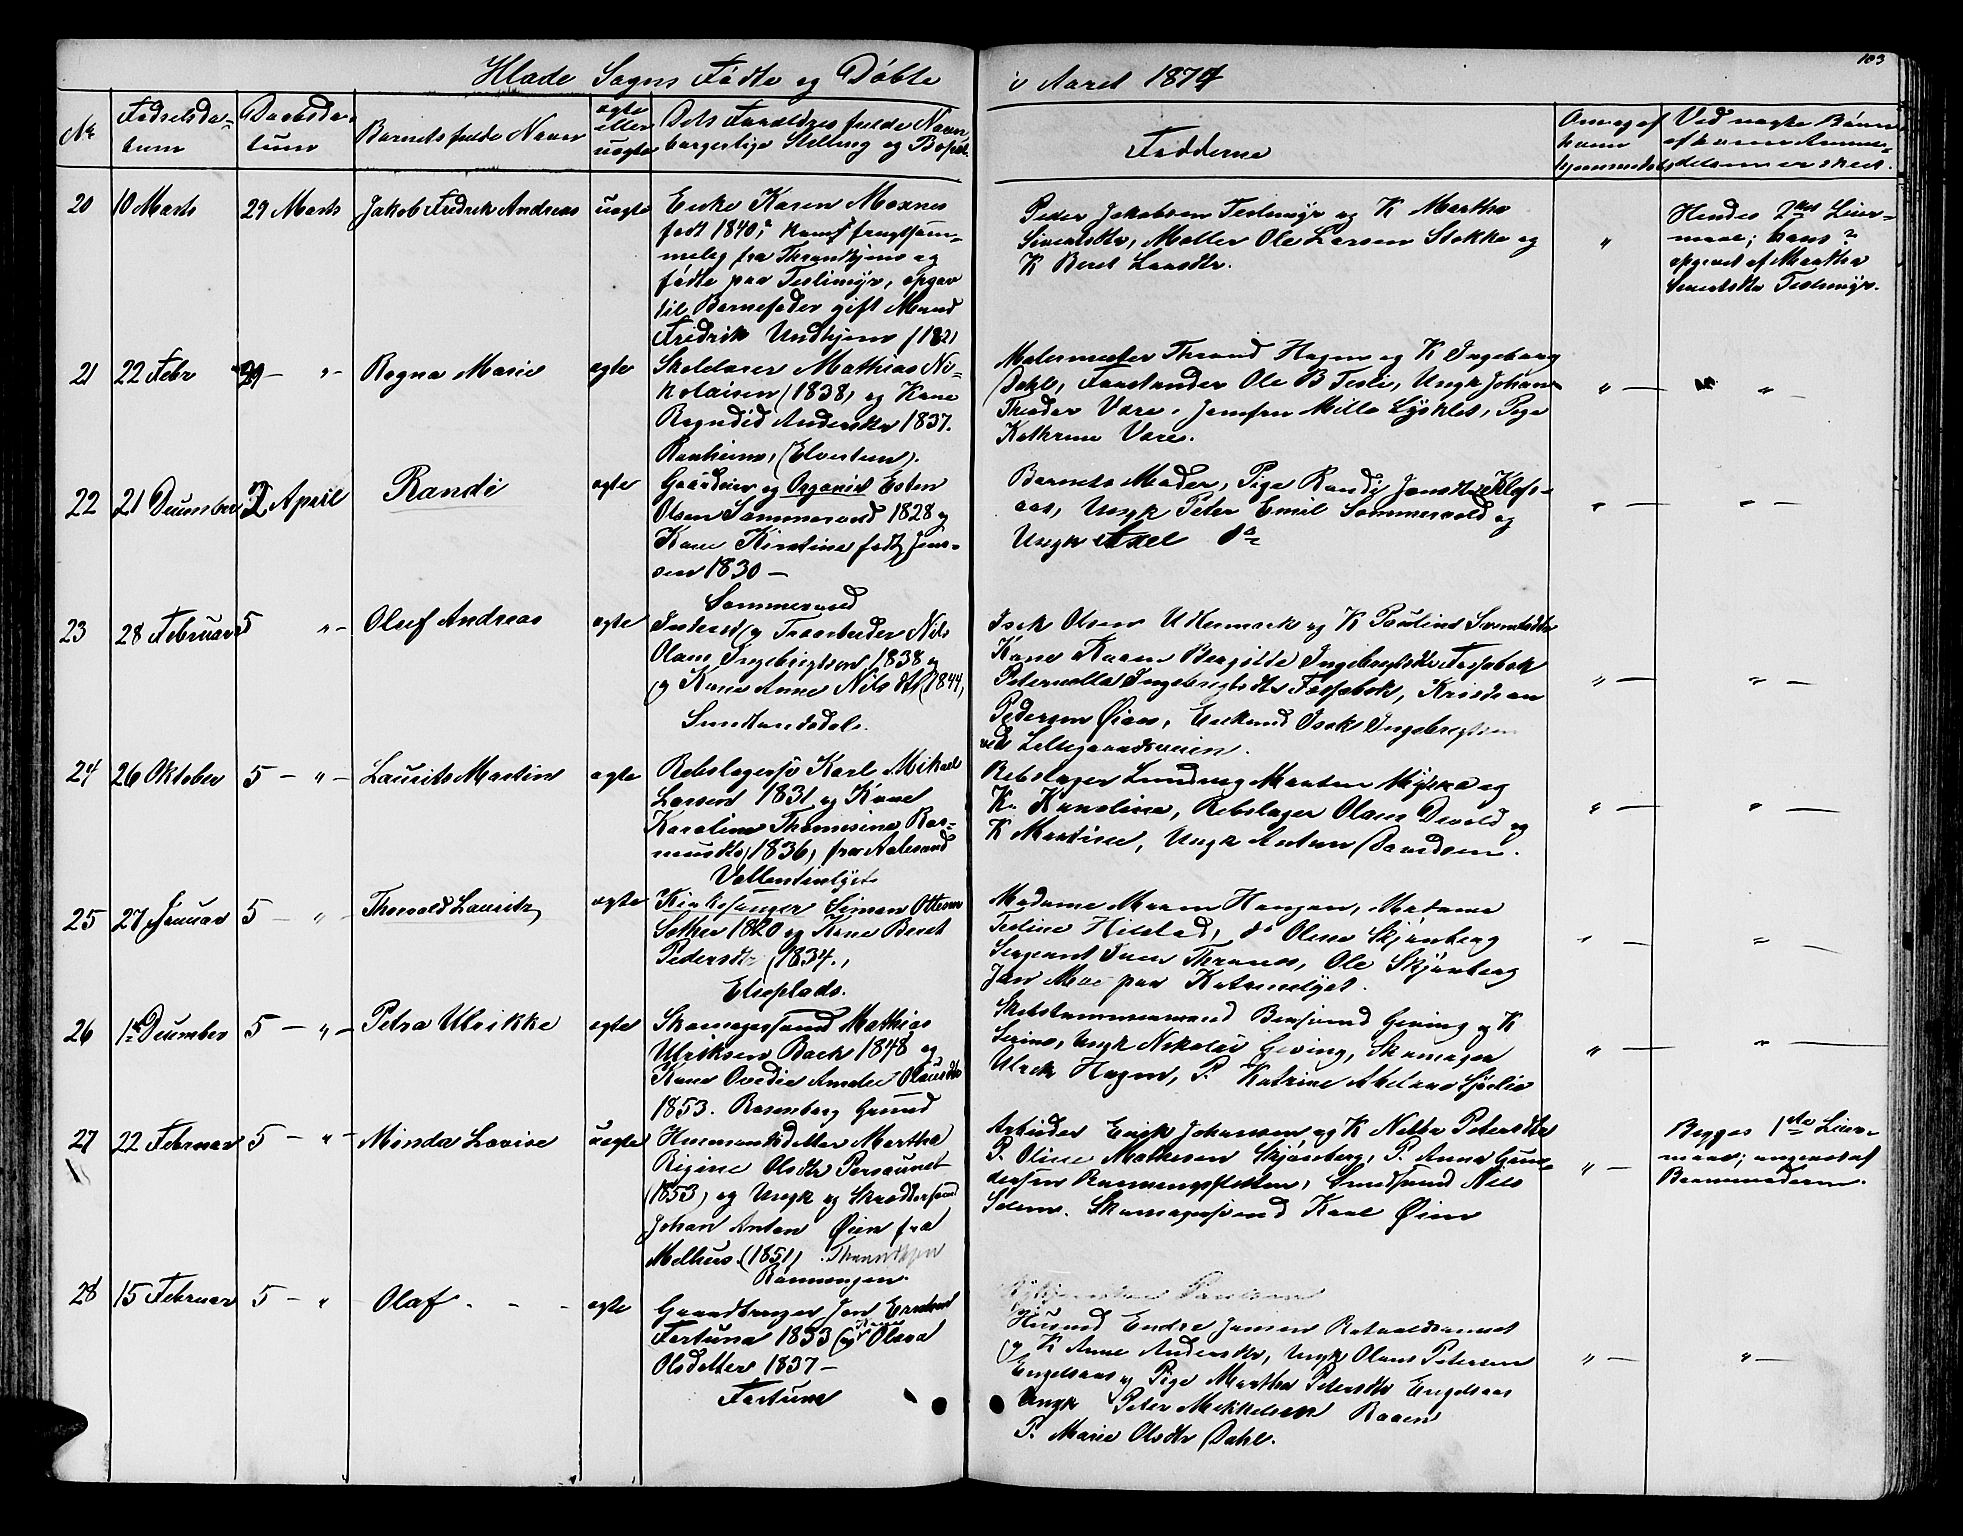 Hlade Sogns Fødte og Døbte
i Aaret 1874
103
No
Fødselsda-
tum
Daabsda-
tum
Barnets fulde Navn
ægte
eller
uægte
Dets Forældres fulde Navn
borgerlige Stilling og Bopæl
Fadderne
Om og af
hvem
hjemmedøbt
Ved uægte Børn
af hvem Anmel-
delsen er skeet.
20
10 Marts
29 Marts
Jakob Fredrik Andreas
uægte
Enke Karen Moxnes
født 1840, kom frugtsom-
melig fra Throndhjem og
fødte paa Teslimyr, opgav
til Barnefader gift Mand
Fredrik Undhjem (1821
Peder Jakobsen Teslimyr og K Martha
Sivertsdtr, Møller Ole Larsen Stokke og
K Beret Larsdtr.
"
Hendes 2det Leier-
maal; hans ?
opgivet af Martha
Sivertsdtr Teslimyr.
21
22 Febr
29 — " -
Ragna Marie
ægte
Skolelærer Mathias Ni-
kolaisen (1838) og Kone
Ragndid Andersdtr 1837.
Ranheim, (Elvertun).
Malermester Thrond Hagen og K Ingeborg
Dahl, Forstander Ole B Tesli, Ungk Johan
Theodor Vare, Jomfru Milla Lysklet, Pige
Kathrine Vares.
" —
" —
22
21 Deumber
2 April
Randi
ægte
Gaardeier og Organist Esten
Olsen Sommervold 1828 og
Kone Kirstine født Jens-
sen 1830 —
Sommervold
Barnets Moder, Pige Randi Jensdtr Klefs-
aas, Ungk Peter Emil Sommervold og
Ungk Axel do
" —
" —
23
28 Februar
5 " -
Oluf Andreas
ægte
Inderst og Traarbeider Nils
Olaus Ingebrigtsen 1838 og
og Kone Anne Nilsdtr (1844,
Sundlandsdale.
Isak Olsen Ukermark og K Pauline Sivertsdtr
Kone Karen Bergitte Ingebrigtsdtr Fosfabrik
Peternella Ingebrigtsdtr Fosfabrik, Kristian
Pedersen Øien, Enkemd Isak Ingebrigtsen
ved Lillegaardsveien.
" —
" —
24
26 Oktober
5 — " -
Laurits Martin
ægte
Rebslagersv Karl Mikael
Larsen 1831 og Kone
Karoline Thomesine Ras-
musdtr (1836) fra Aalesund
Vollentinlyst
Rebslager Lundvig Morten Myhra og
K. Karoline, Rebslager Olaus Devold og
K Martine, Ungk Anton Davidsen.
" —
" —
25
27 Januar
5 — "
Thorvald Lauritz
ægte
Kirkesanger Simon Ottesen
Sæther 1820 og Kone Beret
Pedersdtr (1834.,
Elseplads.
Madame Maren Haugan, Madame
Teline Hilstad, do Olese Skjønberg
Sergeant Iver Thranes, Ole Skjønberg
Jon Moe paa Katrinelyst.
" —
" —
26
1ste Deumber
5 — " -
Petra Ulrikke
ægte
Skomagersvend Mathias
Ulriksen Bach 1848 og
Kone Ovedie Amalie Olausdtr
1853. Rosenborg Grund
Skibstømmermand Bersvend Geving og K
Serine, Ungk Nikolai Geving, Skomager
Ulrik Hagen, P. Katrine Sjølie
" —
" —
27
22 Februar
5 — " -
Minda Lovise
uægte
Huusmandsdatter Martha
Regine Olsdtr Persaunet
(1853) og Ungk og Skræddersvend
Johan Anton Øien fra
Melhus (1851) Throndhjem
Rønningen.
Arbeider Erik Johansen og K Netta Petersdtr
P. Oline Mathesen Skjønberg, P. Anna Gun-
dersen Rønningsletten, Smedsvend Nils
Solem. Skomagersvend Karl Øien
" —
Begges 1ste Leier-
maal; angivet af
Barnemoderen.
28
15 Februar
5 — "
Olaf - - -
ægte
Gaardbruger Jon Ernstsen
Fortuna 1833 og Kone Olava
Olsdatter 1837 —
Fortuna
Husmd Endre Jensen Rotvoldsaunet
og K Anne Andersdtr, Ungk Olaus Petersen
Engelsaas og Pige Martha Petersdtr Engelsaas
Ungk Peter Mikkelsen Raaen
P. Marie Olsdtr Dahl.
" —
" —